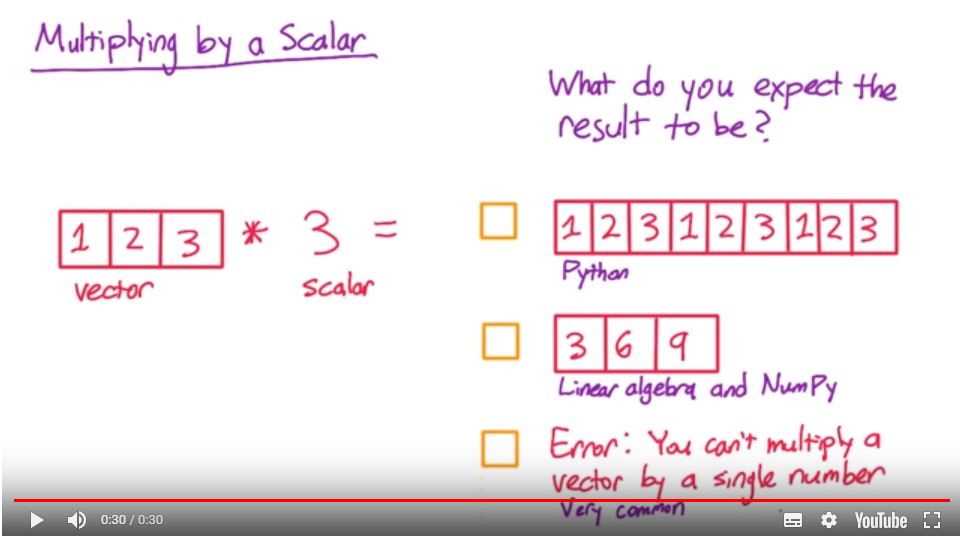 Multiplying by a Scalar
What do you expect the
result to be?
1 2 3 * 3 =
vector
scalar
1 2 3 1 2 3 1 2 3
Python
3 6 9
Linear algebra and NumPy
Error: You can't multiply a
vector by a single number
Very common
0:30 / 0:30
YouTube